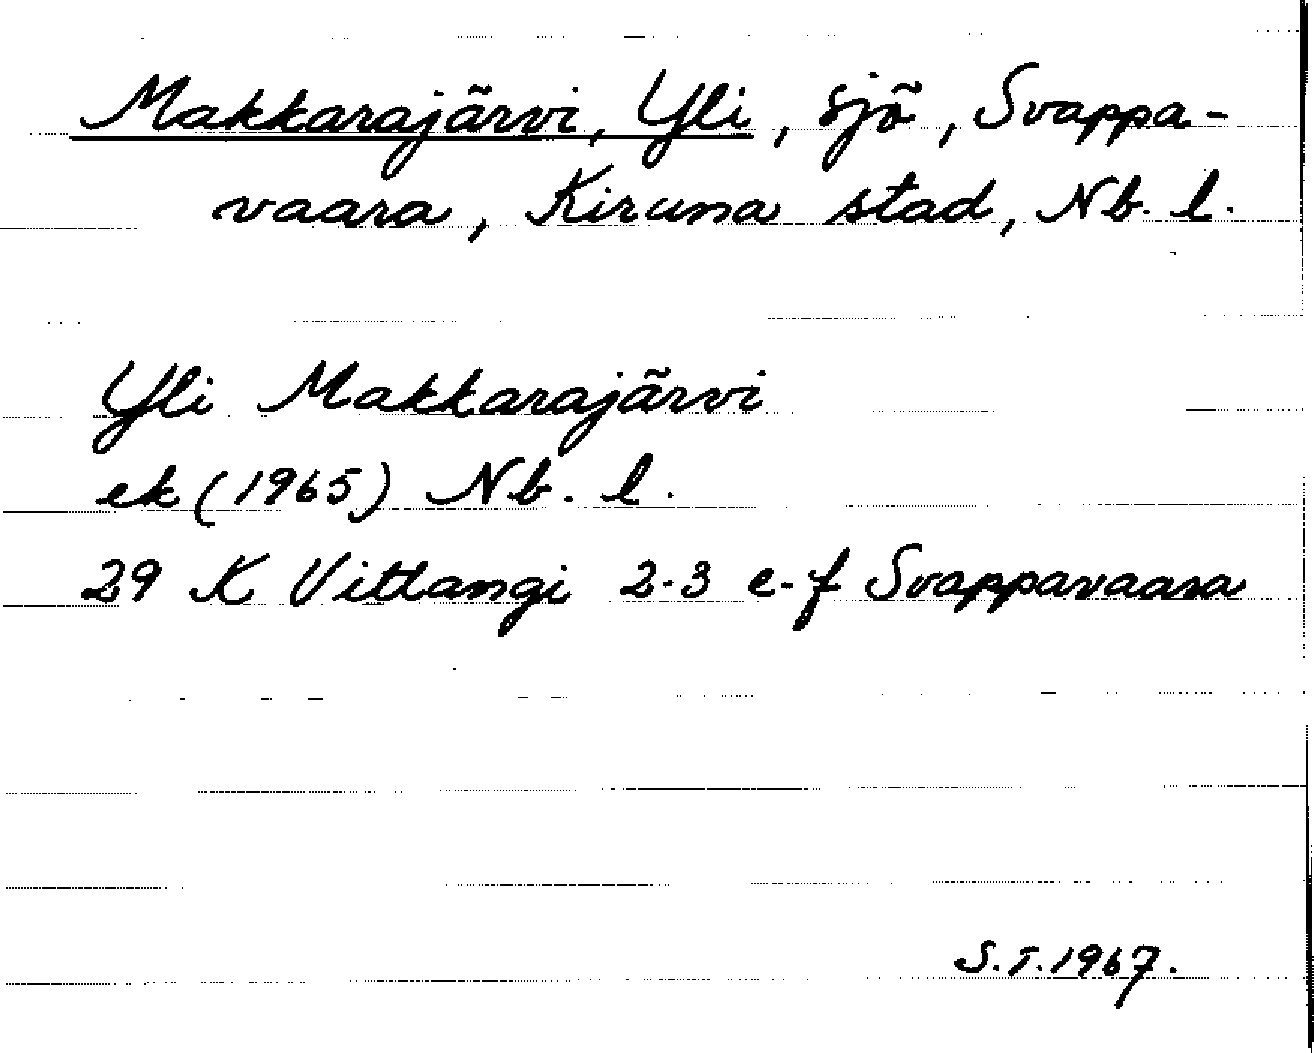 Makkarajärvi, Yli, sjö, Svappa-
vaara, Kiruna stad, Nb. l.
Yli Makkarajärvi
ek (1965) Nb. l.
29 K Vittangi 2-3 e-f Svappavaara
S.T. 1967.